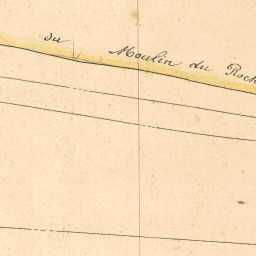 du Moulin du Roch